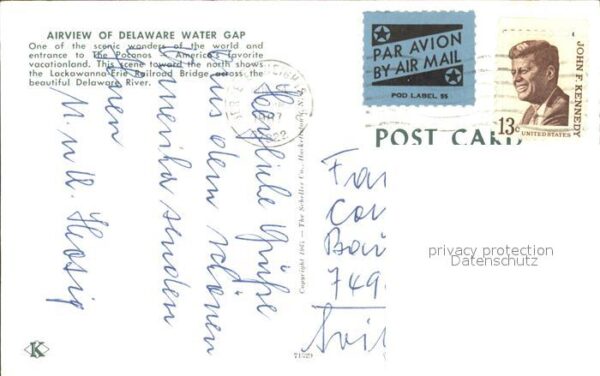 AIRVIEW OF DELAWARE WATER GAP
One of the scenic wonders of the world and
entrance to The Poconos - America's favorite
vacationland. This scene toward the north shows
the Lackawanna-Erie Railroad Bridge across the
beautiful Delaware River.
Herzliche Grüße
aus dem schönen
Amerika senden
M. u. K.
Copyright 1967 — The Scheller Co., Hackettstown, N.J.
71529
K
PAR AVION
BY AIR MAIL
POD LABEL 55
JOHN F. KENNEDY
13c
UNITED STATES
POST CARD
Fa
Con
Bai
749
privacy protection
Datenschutz